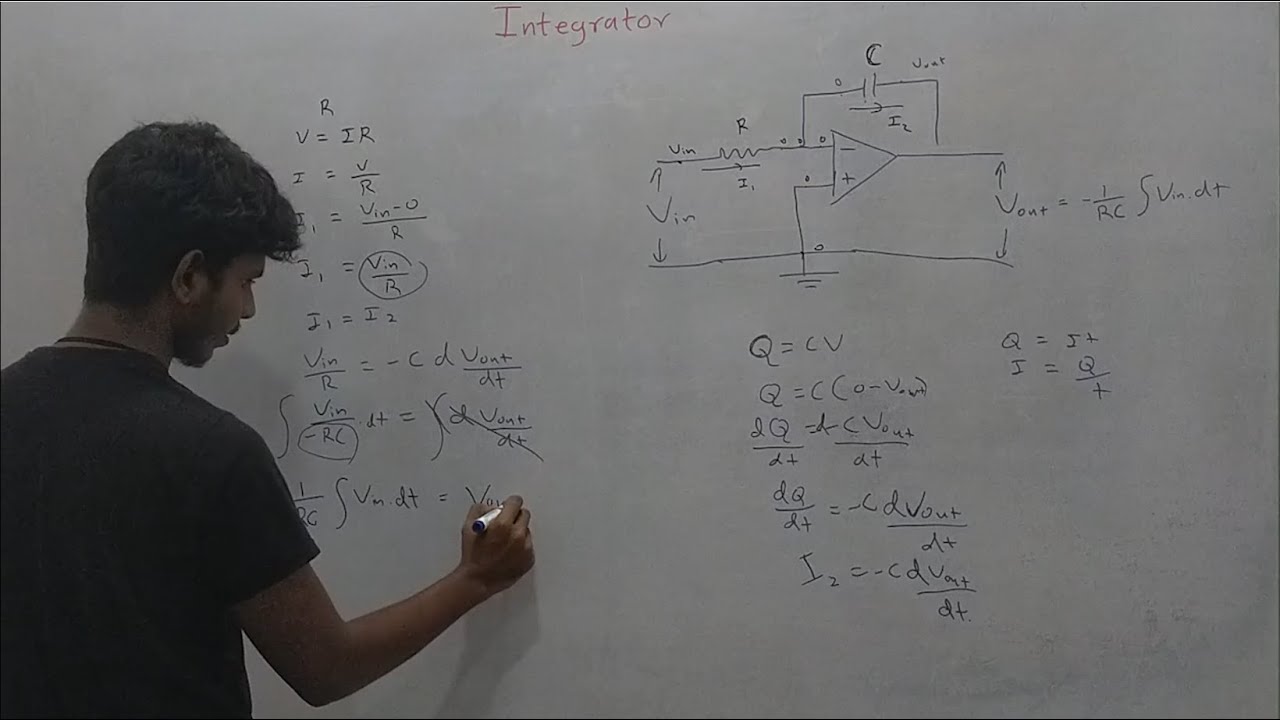 Integrator
R
V = IR
I = V/R
I₁ = Vin-0/R
I₁ = Vin/R
I₁ = I₂
Vin/R = -C d Vout/dt
∫ Vin/-RC .dt = ∫ d Vout/dt
1/RC ∫ Vin.dt = Vou
C
0
Vout
I₂
R
Vin
0 0 0
I₁
−
0
+
Vin
0
Vout = -1/RC ∫ Vin.dt
Q = CV
Q = C(0-Vout)
dQ/dt = d-CVout/dt
dQ/dt = -C dVout/dt
I₂ = -C dVout/dt.
Q = It
I = Q/t